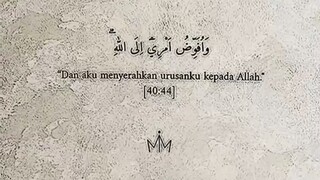 وَاُفَوِّضُ اَمْرِيْٓ اِلَى اللّٰهِ ۗ
"Dan aku menyerahkan urusanku kepada Allah."
[40:44]